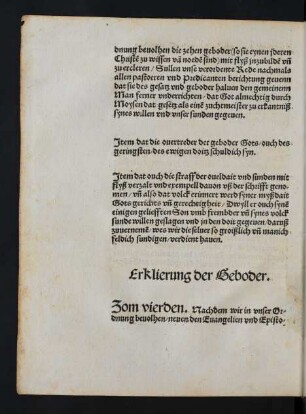 dnung beuolhen die zehen geboder/so sie eynen yderen
Christē zu wissen vā nodē sind/mit flyß inzubildē vñ
zu ercleren/Sullen vnse verordente Rede nachmals
allen pastoeren vnd Predicanten berichtung geuenn
dat sie des gesetz vnd geboder haluen den gemeinem
Man ferner vnderrichten/dat Got almechtig durch
Moysen dat gesetz als einē zuchtmeister zu erkantniß
synes willen vnd vnser sunden gegeuen.
Item dat die ouertreder der geboder Gots/ouch des
geringsten/des ewigen doitz schuldich syn.
Item dat ouch die straff der oueldait vnd sunden mit
flyß verzalt vnd exempell dauon vß der schrifft genomen/
vñ also dat volck erinnert werd syner myßdait
Gots gerichts vñ gerechtigheit/Dwyll er ouch synē
einigen geliefften Son vmb frembder vñ synes volcks
sunde willen geslagen vnd in den doit gegeuen/daruß
zuuernemē/wes wir die seluer so groißlich vñ manich-
feldich sundigen/verdient hauen.
Erklierung der Geboder.
Zom vierden. Nachdem wir in vnser Or-
dnung beuolhen/neuen den Euangelien vnd Episto-